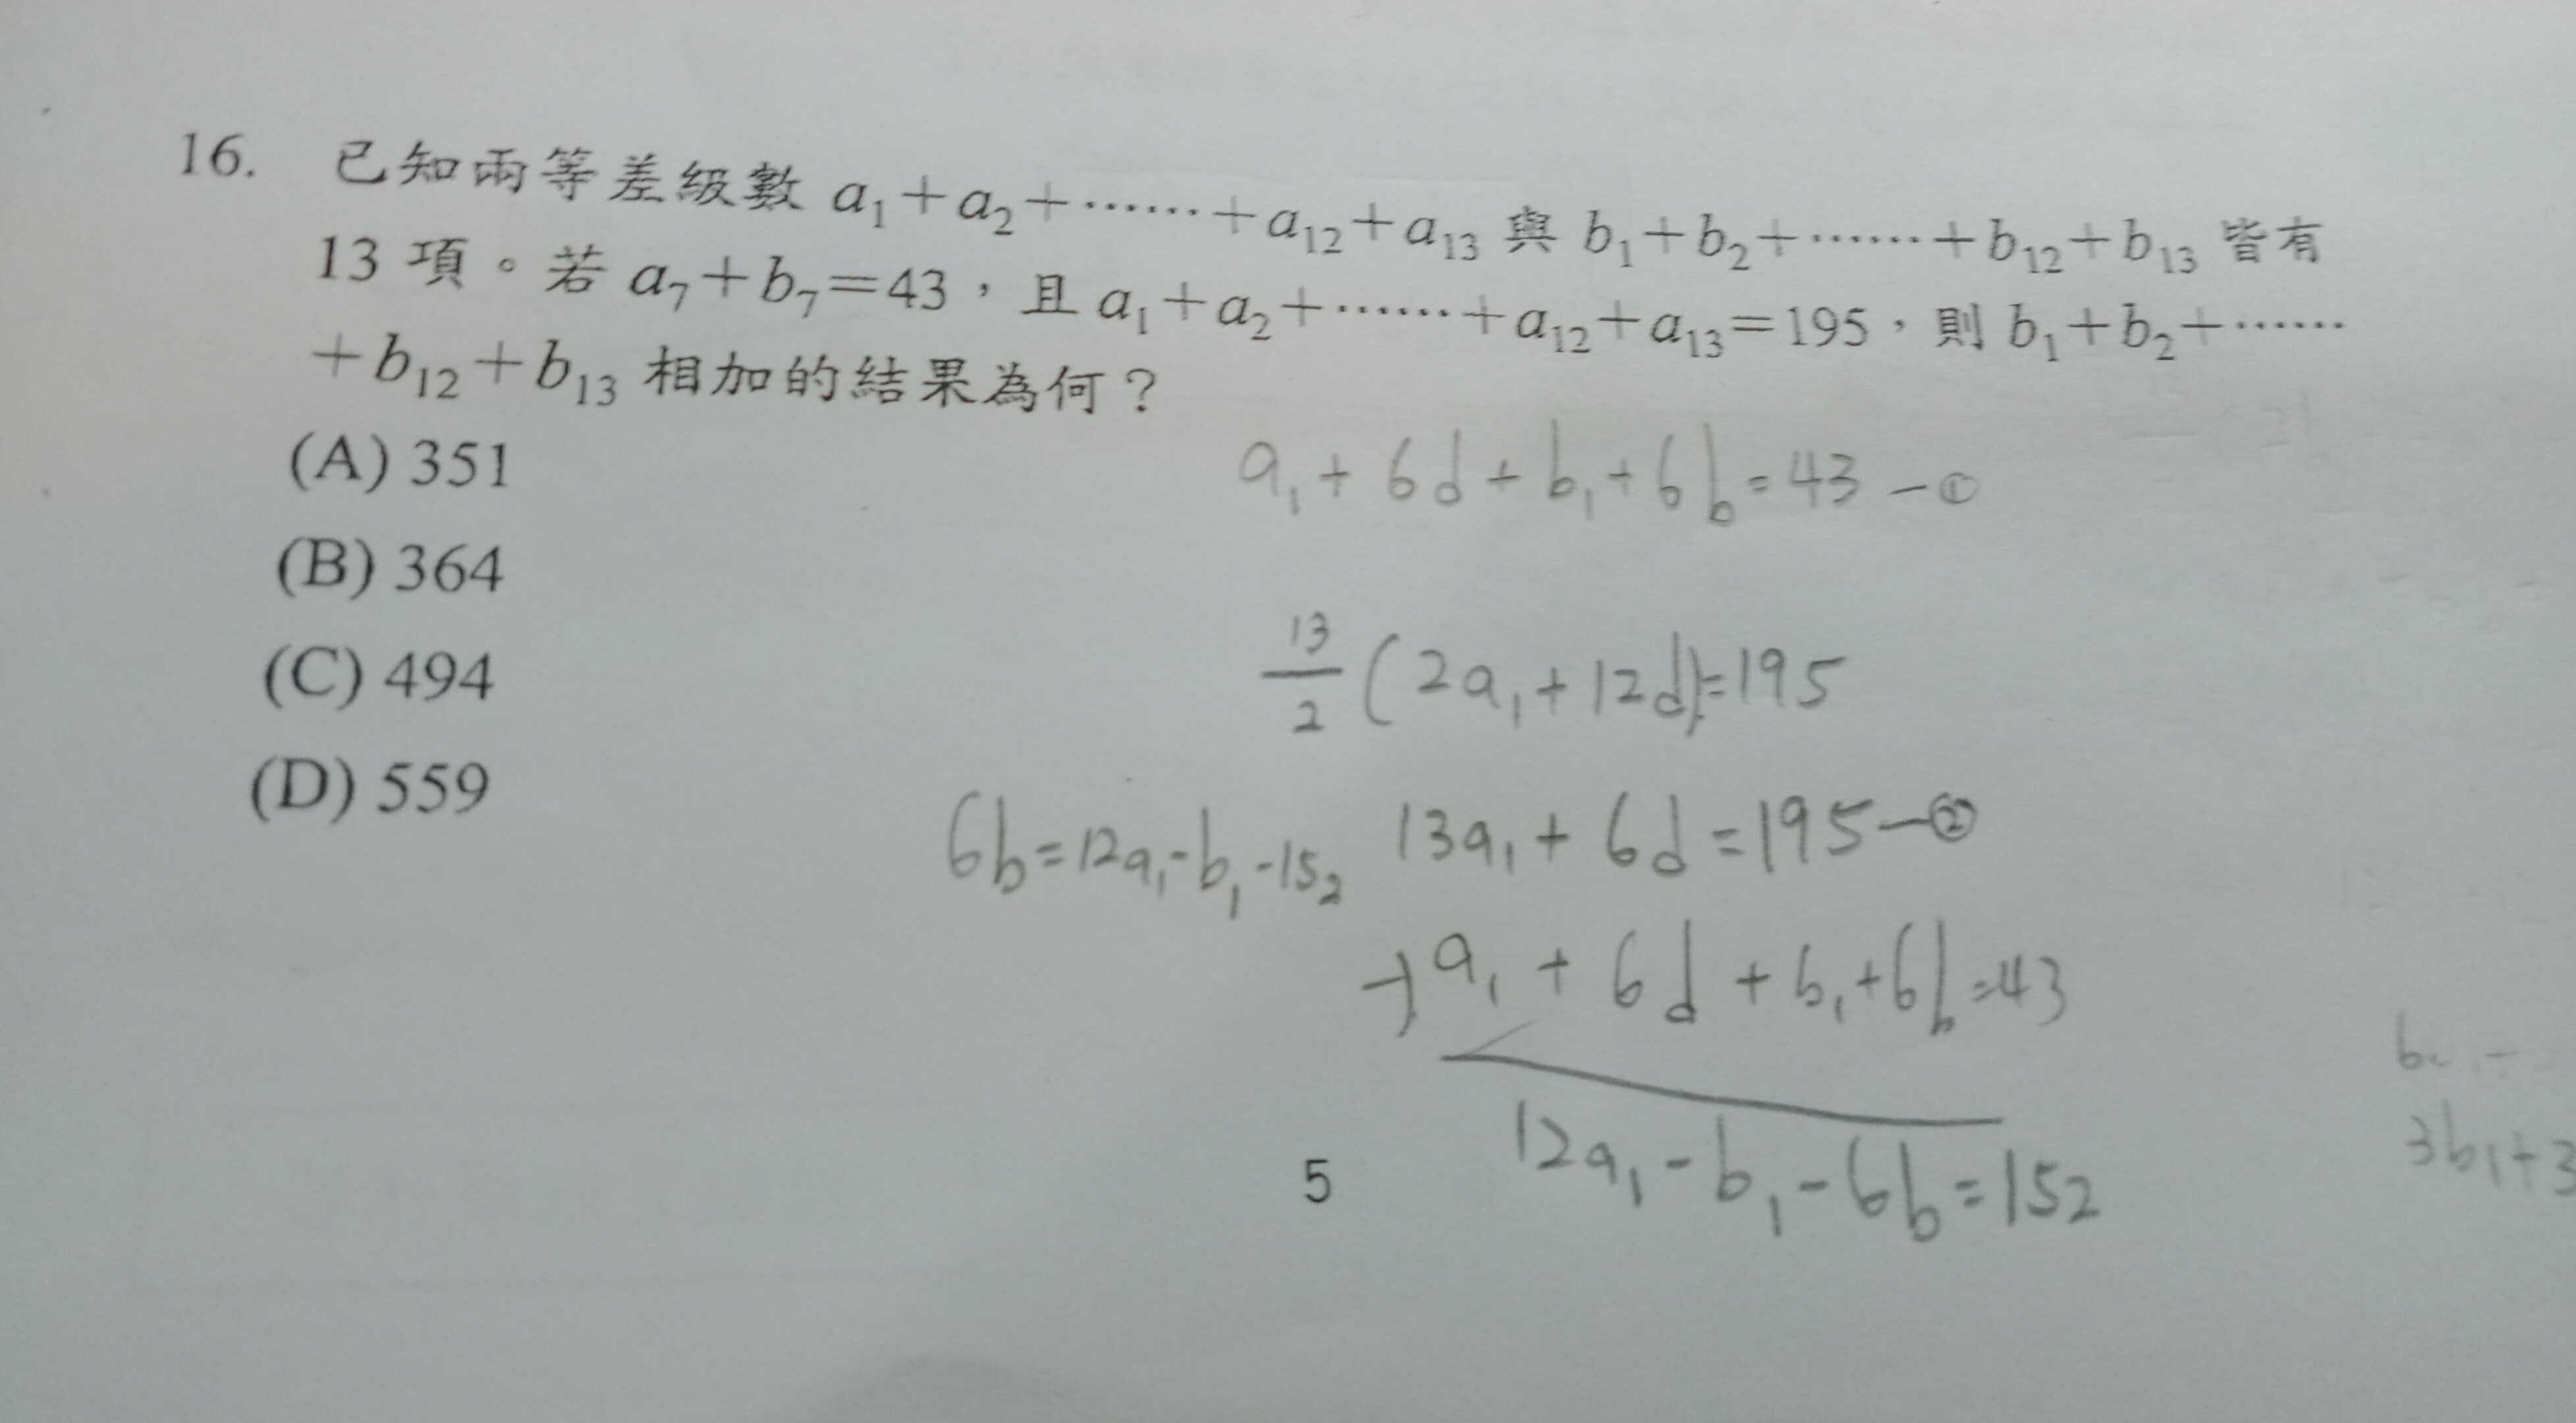 16. 已知兩等差級數 a₁+a₂+……+a₁₂+a₁₃ 與 b₁+b₂+……+b₁₂+b₁₃ 皆有
13 項。若 a₇+b₇=43，且 a₁+a₂+……+a₁₂+a₁₃=195，則 b₁+b₂+……
+b₁₂+b₁₃ 相加的結果為何？
(A) 351
(B) 364
(C) 494
(D) 559
a₁+6d+b₁+6b=43 —①
13/2 (2a₁+12d)=195
13a₁+6d=195—②
6b=12a₁-b₁-152
-) a₁+6d+b₁+6b=43
12a₁-b₁-6b=152
3b₁+3
5